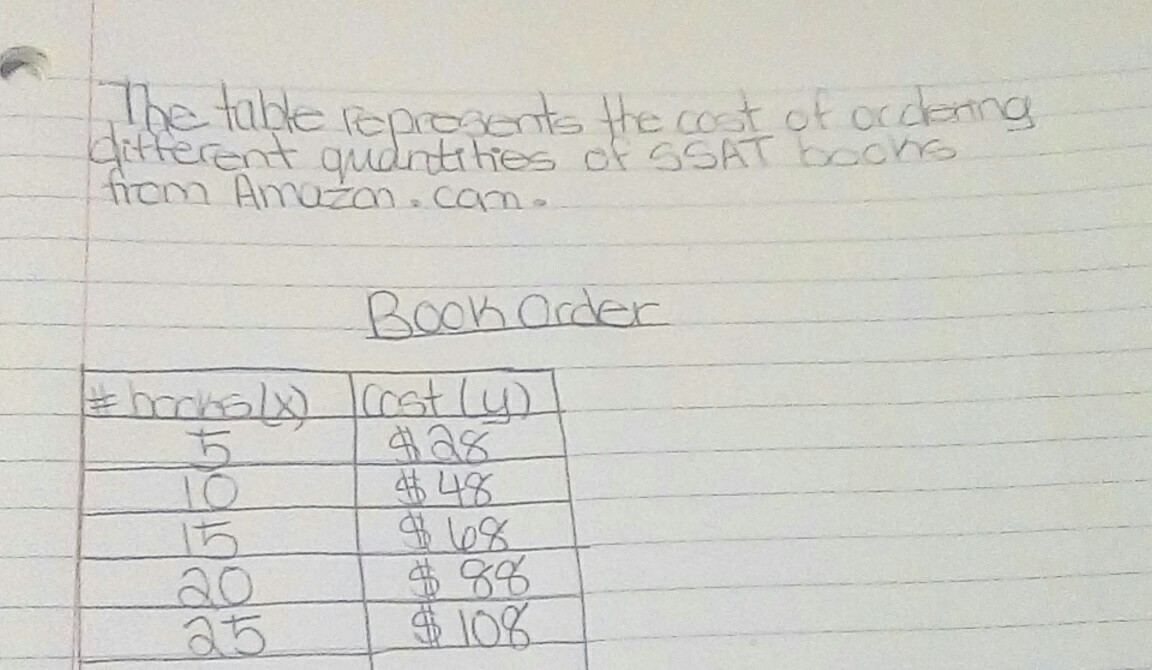 The table represents the cost of ordering
different quantities of SSAT books
from Amazon.com.
Book Order
# books (x) cost (y)
5 $28
10 $48
15 $68
20 $88
25 $108